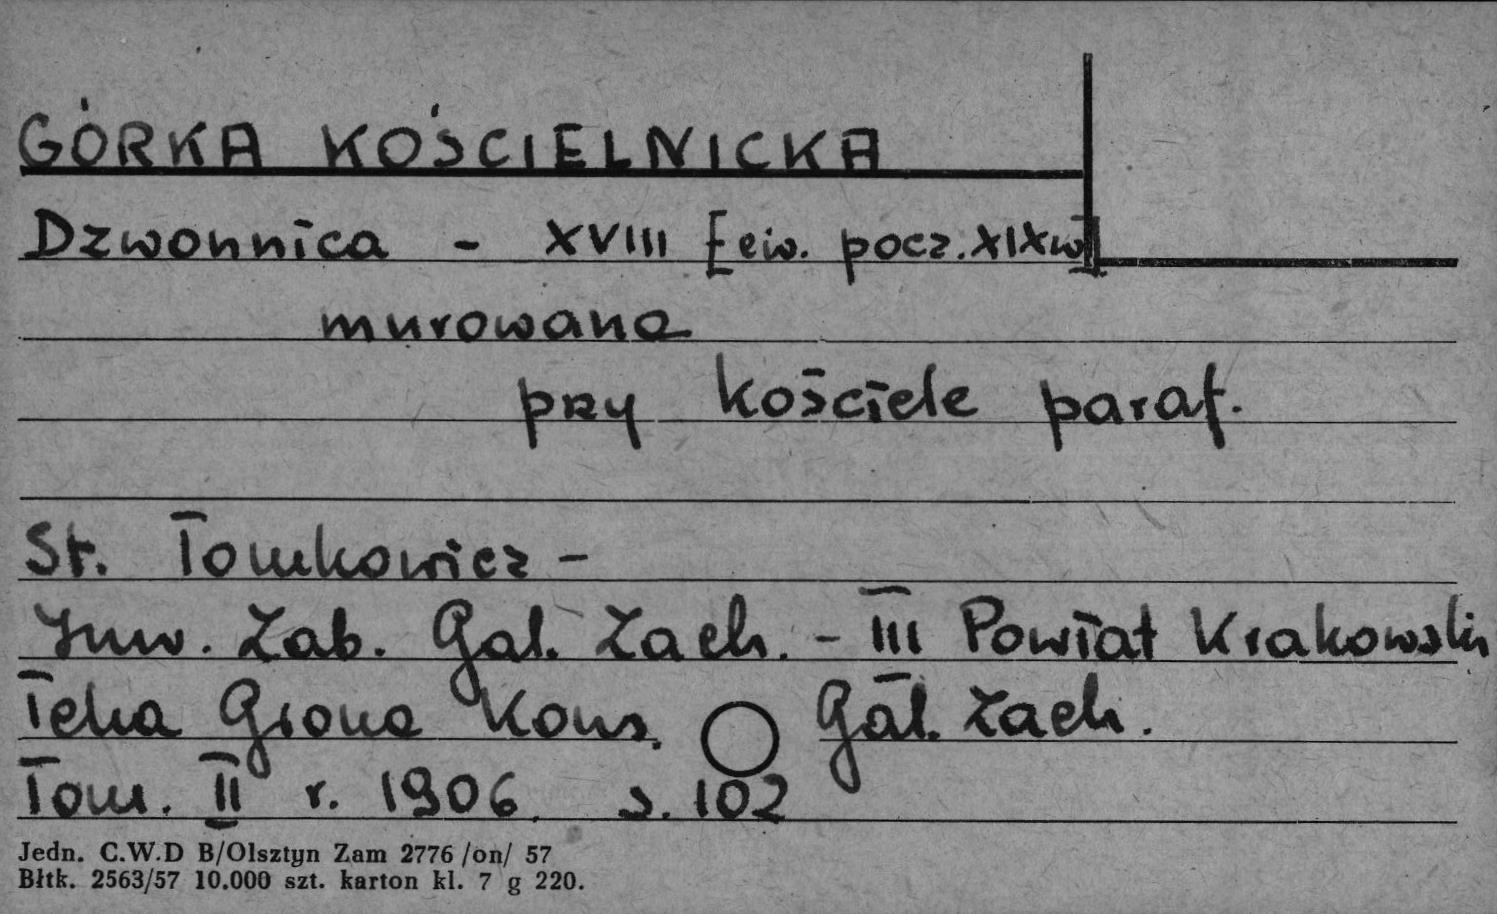 GÓRKA KOŚCIELNICKA
Dzwonnica - XVIII [ew. pocz. XIX w]
murowana
przy kościele paraf.
St. Tomkowicz -
Inw. Zab. Gal. Zach. - III Powiat Krakowski
Teka Grona Kons. Gal. Zach.
Tom. II r. 1906. s. 102
Jedn. C.W.D B/Olsztyn Zam 2776 /on/ 57
Błtk. 2563/57 10.000 szt. karton kl. 7 g 220.